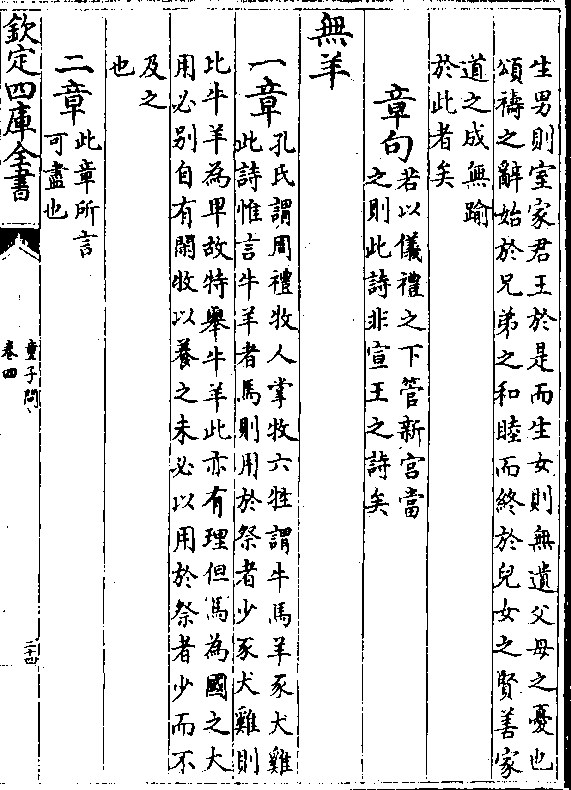 生男則室家君王於是而生女則無遺父母之憂也
頌禱之辭始於兄弟之和睦而終於兒女之賢善家
道之成無踰
於此者矣
章句若以儀禮之下管新宮當
之則此詩非宣王之詩矣
無羊
一章孔氏謂周禮牧人掌牧六牲謂牛馬羊豕犬雞
此詩惟言牛羊者馬則用於祭者少豕犬雞則
比牛羊為卑故特舉牛羊此亦有理但馬為國之大
用必别自有閑牧以養之未必以用於祭者少而不
及之
也
二章此章所言
可盡也
欽定四庫全書
童子問
卷四
二十四